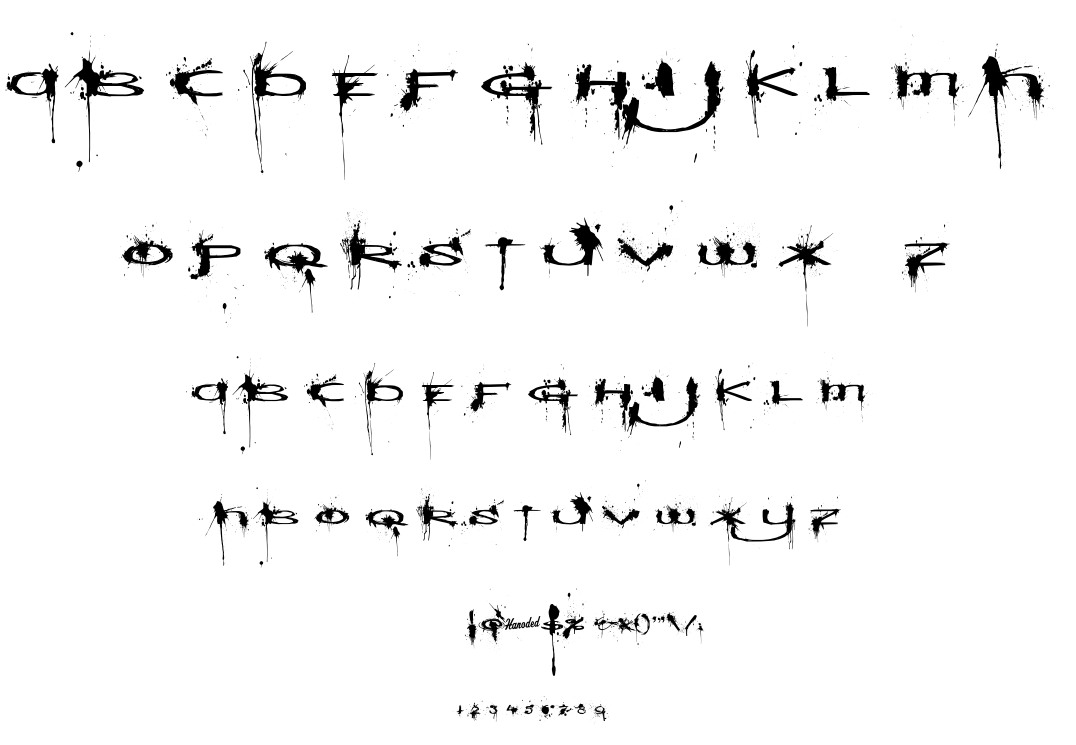 a B C D E F G H I J K L m n
O P Q R S T U V W X Z
a B C D E F G H I J K L m
n B O Q R S T U V W X y Z
! @ Hanoded $ % * ( ) " \ / ;
1 2 3 4 5 6 7 8 9